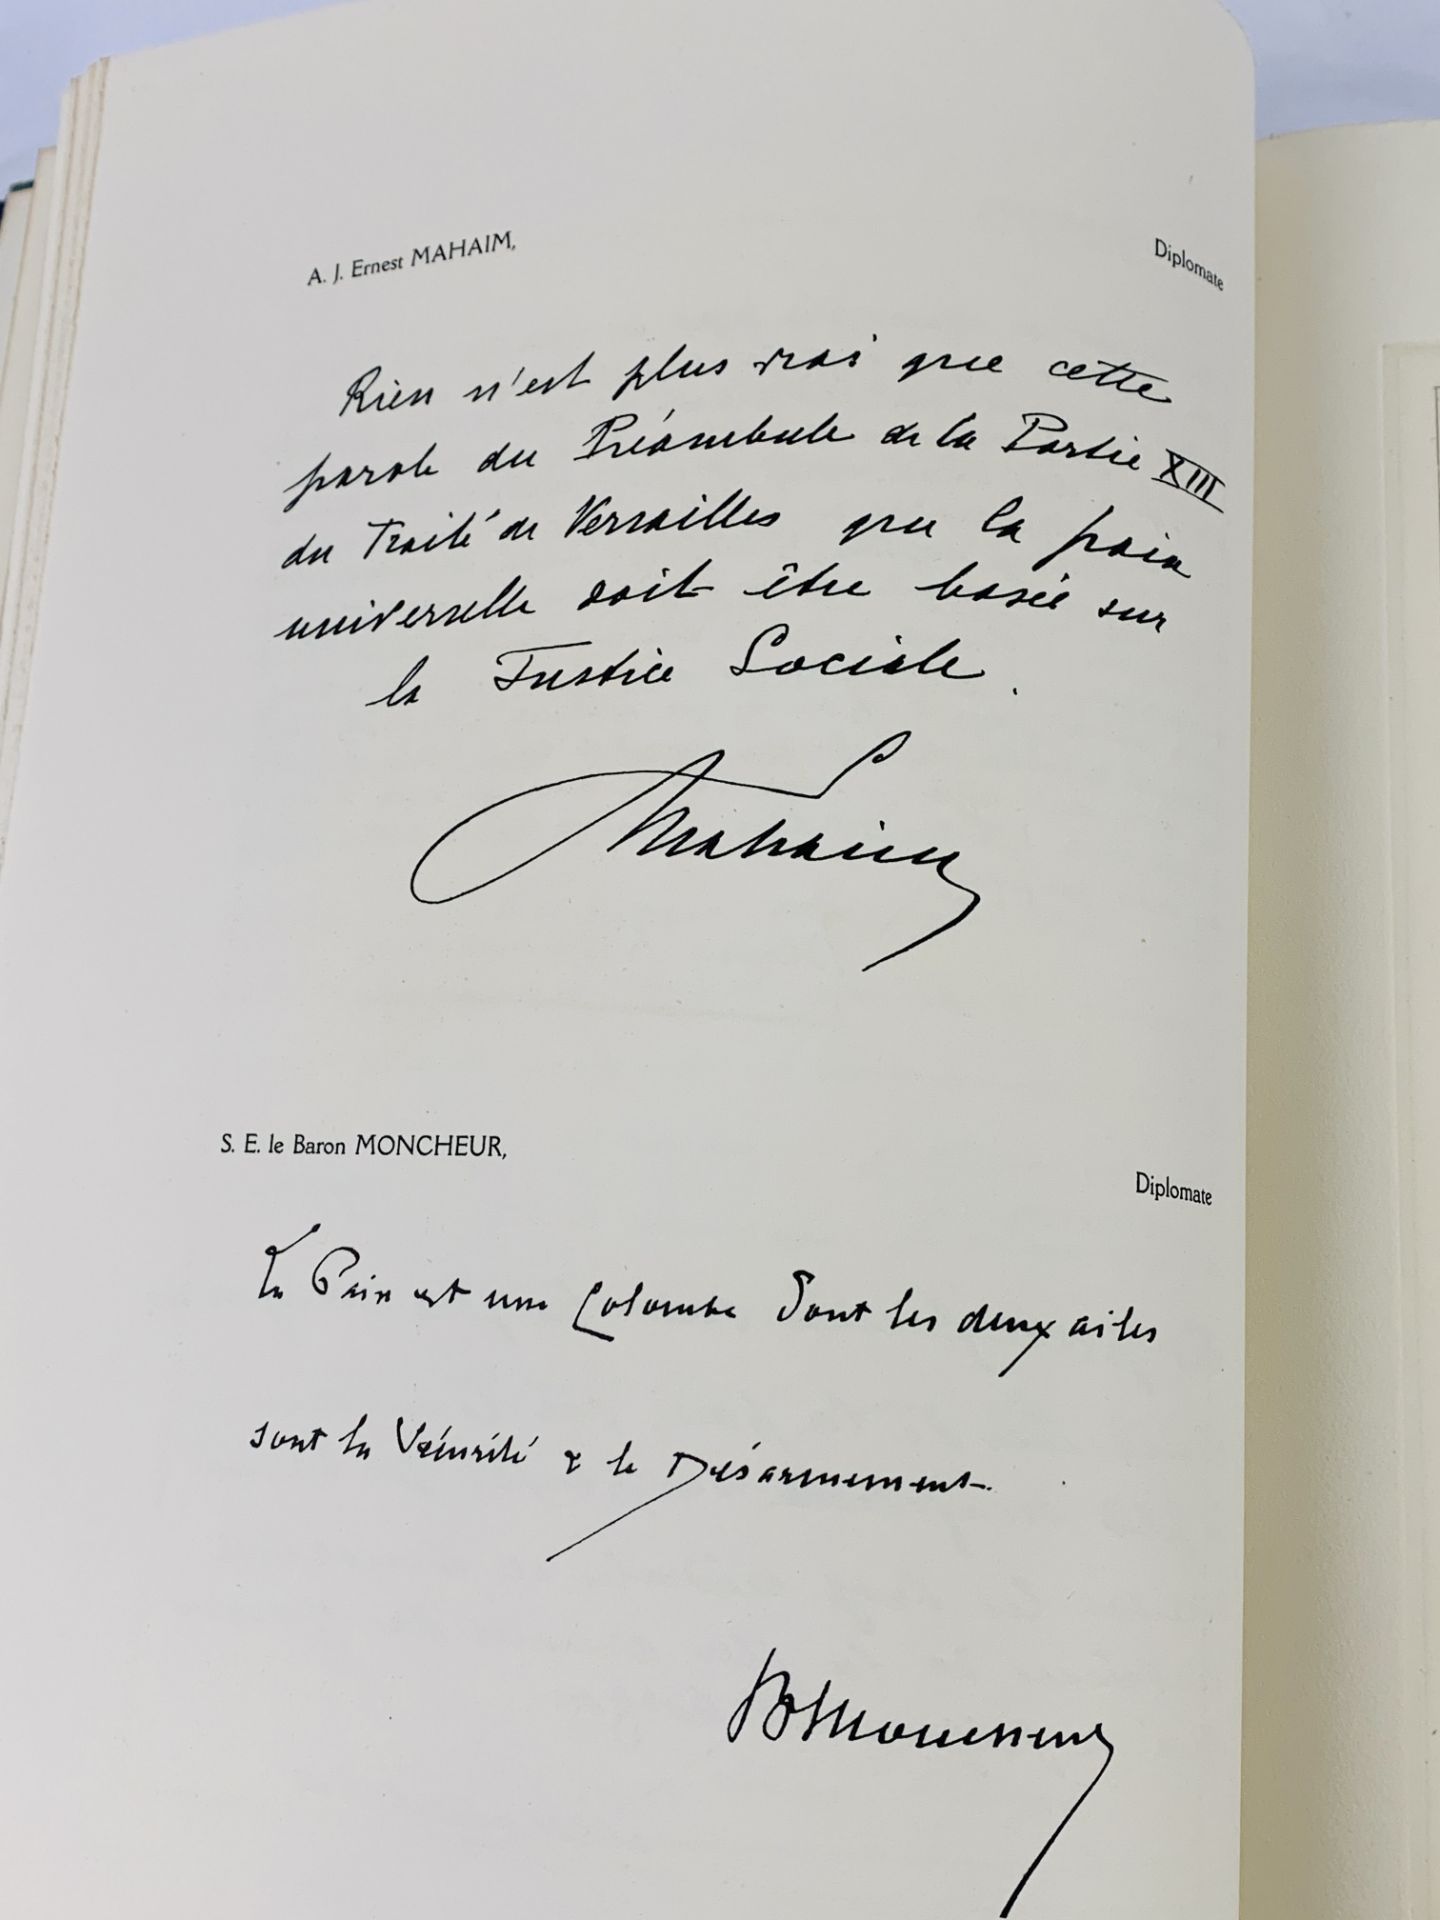 A. J. Ernest MAHAIM,
Diplomate
Rien n'est plus vrai que cette
parole du Préambule de la Partie XIII
du Traité de Versailles que la paix
universelle doit être basée sur
la Justice Sociale.
Mahaim
S. E. le Baron MONCHEUR,
Diplomate
La Paix est une Colombe dont les deux ailes
sont la Sécurité & le Désarmement.
Bon Moncheur